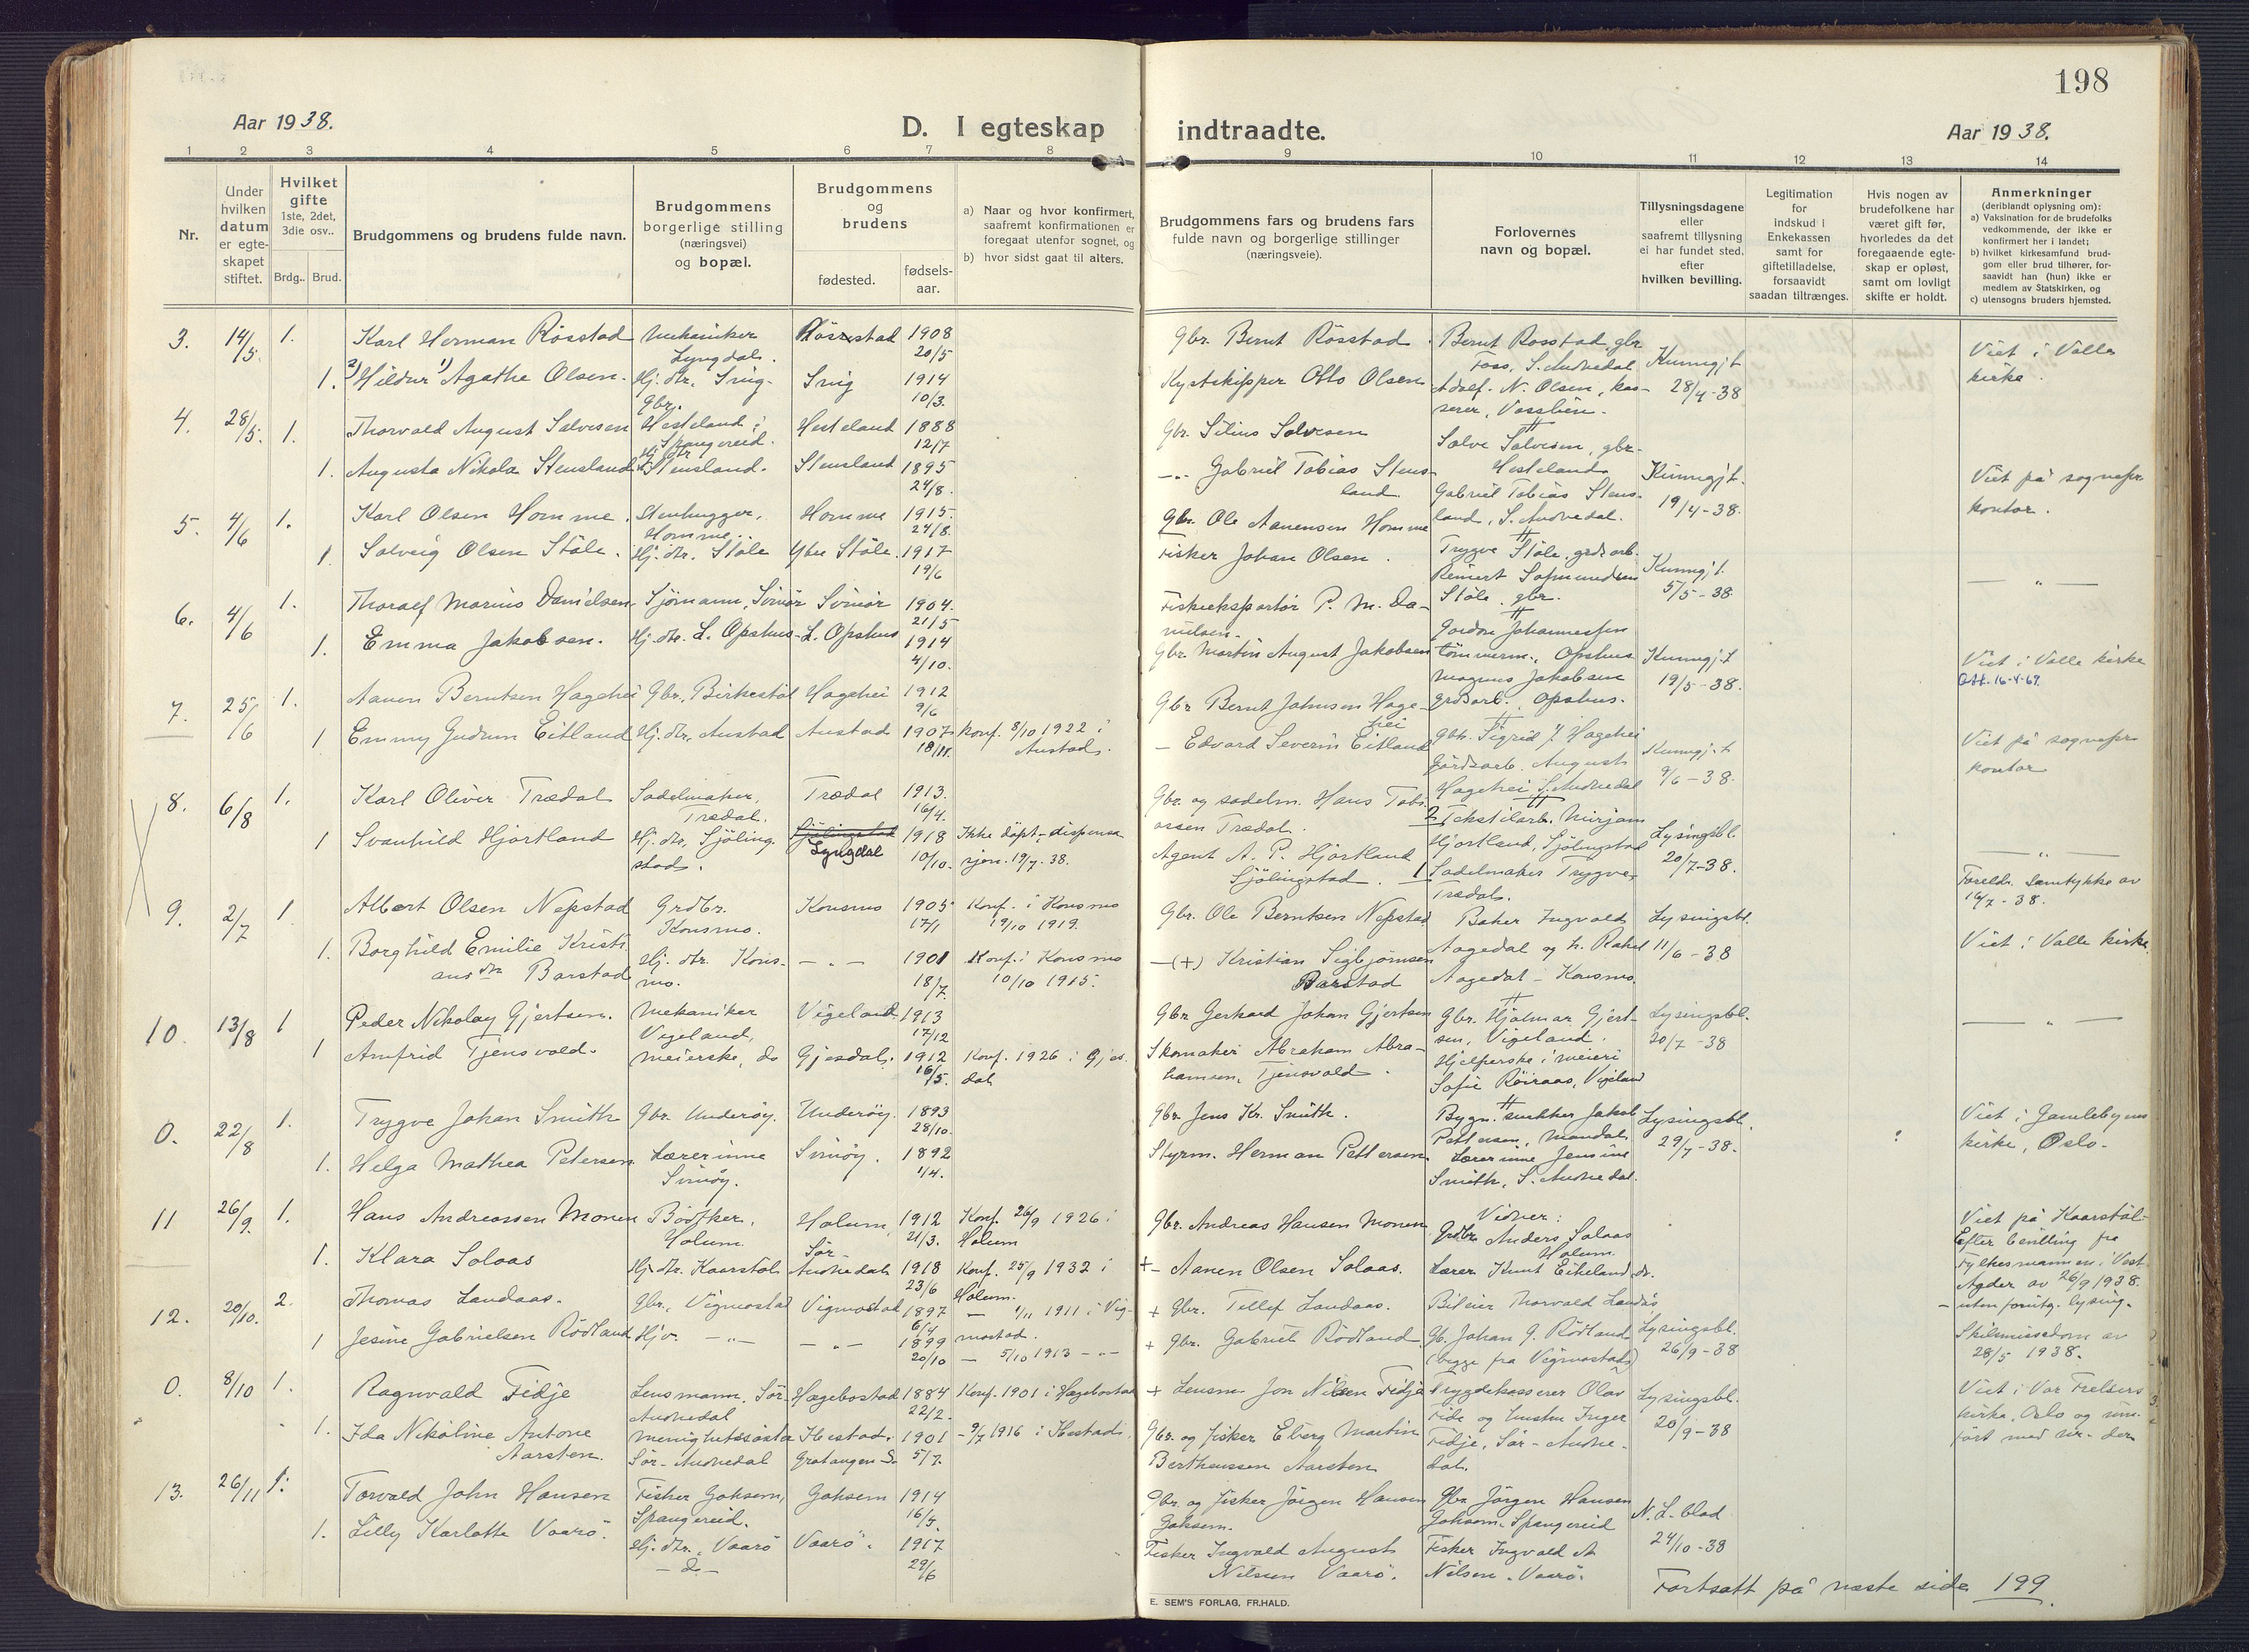 198
Aar 1938.
D. I egteskap indtraadte.
Aar 1938.
1 2 3 4 5 6 7 8 9 10 11 12 13 14
Nr.
Under hvilken datum er egteskapet stiftet.
Hvilket gifte
1ste, 2det, 3die osv..
Brdg.. Brud.
Brudgommens og brudens fulde navn.
Brudgommens borgerlige stilling (næringsvei) og bopæl.
Brudgommens og brudens
fødested.
fødsels-aar.
a) Naar og hvor konfirmert, saafremt konfirmationen er foregaat utenfor sognet, og
b) hvor sidst gaat til alters.
Brudgommens fars og brudens fars fulde navn og borgerlige stillinger (næringsveie).
Forlovernes navn og bopæl.
Tillysningsdagene eller saafremt tillysning ei har fundet sted, efter hvilken bevilling.
Legitimation for indskud i Enkekassen samt for giftetilladelse, forsaavidt saadan tiltrænges.
Hvis nogen av brudefolkene har været gift før, hvorledes da det foregaaende egteskap er opløst, samt om lovligt skifte er holdt.
Anmerkninger (deriblandt oplysning om):
a) Vaksination for de brudefolks vedkommende, der ikke er konfirmert her i landet;
b) hvilket kirkesamfund brudgom eller brud tilhører, forsaavidt han (hun) ikke er medlem av Statskirken, og
c) utensogns bruders hjemsted.
3. 14/5. 1. Karl Herman Rösstad Mekaniker Lyngdal. Rösstad 1908 20/5 Gbr. Bernt Rösstad Bernt Rosstad, gbr Foss, S. Audnedal Kunngj.t 28/4-38 Viet i Valle kirke.
1. 2) Hildur 1) Agathe Olsen. Hj. dtr. Snig Snig 1914 10/3. Kystskipper Otto Olsen Adolf. N. Olsen, kasserer, Vassbøen.
4. 28/5. 1. Thorvald August Salvesen Gbr. Hesteland i Spangereid. Hesteland 1888 12/7 Gbr. Silius Salvesen Salve Salvesen, gbr. Hesteland Kunngj.t. 19/4-38. Viet på sognepr. kontor.
1. Augusta Nikola Stensland Hj. dtr. Stensland. Stensland 1895 24/8. -"- Gabriel Tobias Stensland. Gabriel Tobias Stensland, S. Audnedal.
5. 4/6 1. Karl Olsen Homme. Stenhugger, Homme. Homme 1915. 24/8. Gbr. Ole Aanensen Homme Trygve Ståle, grdsarb. Kunngj.t. 5/5-38. — " —
1. Solveig Olsen Ståle. Hj. dtr. Ståle Ytre Ståle. 1917 19/6 Fisker Johan Olsen. Reinert Salmundsen Ståle, gbr.
6. 4/6 1. Thoralf Marius Danielsen Sjömann, Svinör Svinör 1904. 21/5 Fiskeeksportör P. M. Danielsen. Gordon Johannessen tömmerm., Opshus Kunngj.t 19/5-38. Viet i Valle kirke
1. Emma Jakobsen. Hj. dtr. L. Opshus L. Opshus 1914 4/10. Gbr. Martin August Jakobsen Magnus Jakobsen grdsarb. Opshus.
7. 25/6 1. Aanen Berntsen Hagehei Gbr. Birkestöl Hagehei 1912 9/6 Gbr. Bernt Johnsen Hagehei Gbr. Sigrid Hagehei Kunngj.t 9/6-38. Viet på sognepr. kontor
1 Emmy Gudrun Eitland Hj. dtr. Austad Austad 1907 18/11. Konf. 8/10 1922 i Austad. — Edvard Severin Eitland Gårdsarb. August Hagehei, S. Audnedal
8. 6/8 1. Karl Oliver Trædal Sadelmaker, Trædal. Trædal 1913. 16/4. Gbr. og sadelm. Hans Tobiassen Trædal. 2 Tekstilarb. Mirjam Hjortland, Sjölingstad Lysingsbl. 20/7-38. — " —
1 Svanhild Hjortland Hj. dtr. Sjölingstad. Lyngdal 1918 10/10. Ikke döpt, dispensasjon. 19/7. 38. Agent A. P. Hjortland Sjölingstad. 1 Sadelmaker Trygve Trædal. Foreldr. samtykke av 16/7-38.
9. 2/7 1 Albert Olsen Nepstad Grdbr. Konsmo. Konsmo 1905 17/1 Konf. i Konsmo 19/10 1919. Gbr. Ole Berntsen Nepstad Baker Ingvald Aagedal og h. Rakel Aagedal - Konsmo. Lysingsbl. 11/6-38 Viet i Valle kirke.
1. Borghild Emilie Kristiansdtr Barstad Hj. dtr. Konsmo. — " — 1901 18/7. Konf. i Konsmo 10/10 1915. — (+) Kristian Sigbjørnsen Barstad
10. 13/8 1 Peder Nikolay Gjertsen. Mekaniker Vigeland, Vigeland. 1913 17/12 Gbr. Gerhard Johan Gjertsen Gbr. Hjalmar Gjertsen, Vigeland. Lysingsbl. 20/7-38 — " —
1 Arnfrid Tjensvold. meierske, do Gjesdal. 1912 16/5. Konf. 1926 i Gjesdal Skomaker Abraham Abrahamsen, Tjensvold. Hjelperske i meieri Sofie Röiraas, Vigeland
0. 22/8 1. Trygve Johan Smith Gbr. Underöy. Underöy. 1893 28/10. Gbr. Jens Kr. Smith. Bygn. snekker Jakob Pettersen, Mandal Lysingsbl. 29/7-38. Viet i Gamlebyens kirke, Oslo.
1. Helga Mathea Petersen Lærerinne Svinöy. Svinöy. 1892 1/4. Styrm. Herman Pettersen. Lærerinne Jensine Smith, S. Audnedal.
11 26/9. 1. Hans Andreassen Monen Bödtker, Holum Holum 1912 21/3. Konf. 26/9 1926 i Holum Gbr. Andreas Hansen Monen Vidner: Grdbr. Anders Solaas Holum Viet på Kaarstöl Efter bevilling fra Fylkesmannen i Vest-Agder av 26/9 1938. uten forutg. lysing.
1. Klara Solaas Hj. dtr. Kaarstöl Sör-Audnedal 1918 23/6 Konf. 25/9 1932 i Holum. + — Aanen Olsen Solaas. Lærer Knut Eikeland do.
12. 20/10. 2. Thomas Landaas. Gbr., Vigmostad Vigmostad 1897 6/4 — 1/11 1911 i Vigmostad. + Gbr. Tellef Landaas. Bileier Thorvald Landås Lysingsbl. 26/9-38 Skilsmissedom av 28/5 1938.
1 Jesine Gabrielsen Rödland Hjv. — " — — " — 1899 20/10 — 5/10 1913 — " — + Gbr. Gabriel Rödland Gb. Johan G. Rödland (begge fra Vigmostad)
0. 8/10 1. Ragnvald Fidje Lensmann, Sör-Audnedal Hægebostad 1884 22/2. Konf. 1901 i Hægebostad + Lensm. Jon Nilsen Fidje Trygdekasserer Olav Fide og Inger Fidje, Sör-Audnedal. Lysingsbl. 20/9-38 Viet i Vor Frelsers kirke, Oslo
1. Ida Nikoline Antone Aarsten. Menighetssöster Sör-Audnedal Ibestad, Gratangen S. 1901 5/7. - 9/7 1916 i Ibestad. Gbr. og fisker Eberg Martin Bertheussen Aarsten
13. 26/11 1. Torvald John Hansen Fisker Gahsem, Spangereid. Gahsem 1914 16/5. Gbr. og fisker Jörgen Hansen Gahsem. Gbr. Jörgen Hansen Gahsem, Spangereid N. L. blad 24/10-38
1. Lilly Karlotta Vaarö. Hj. dtr., Vaarö Vaarö. 1917 29/6 Fisker Ingvald August Nilsen Vaarö. Fisker Ingvald A Nilsen. Vaarö.
Fortsatt på næste side 199.
E. SEM'S FORLAG, FR.HALD.